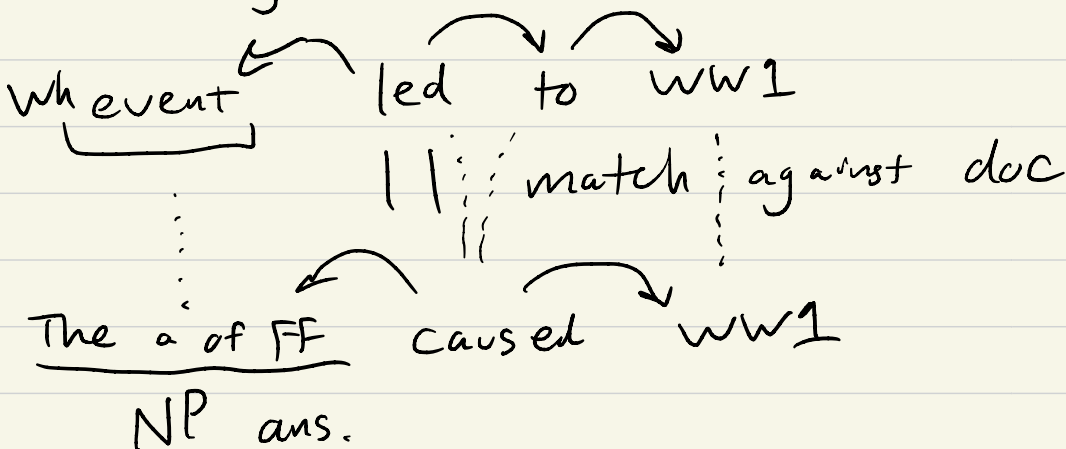 Wh event led to WW1
|| match against doc
The a of FF caused WW1
NP ans.